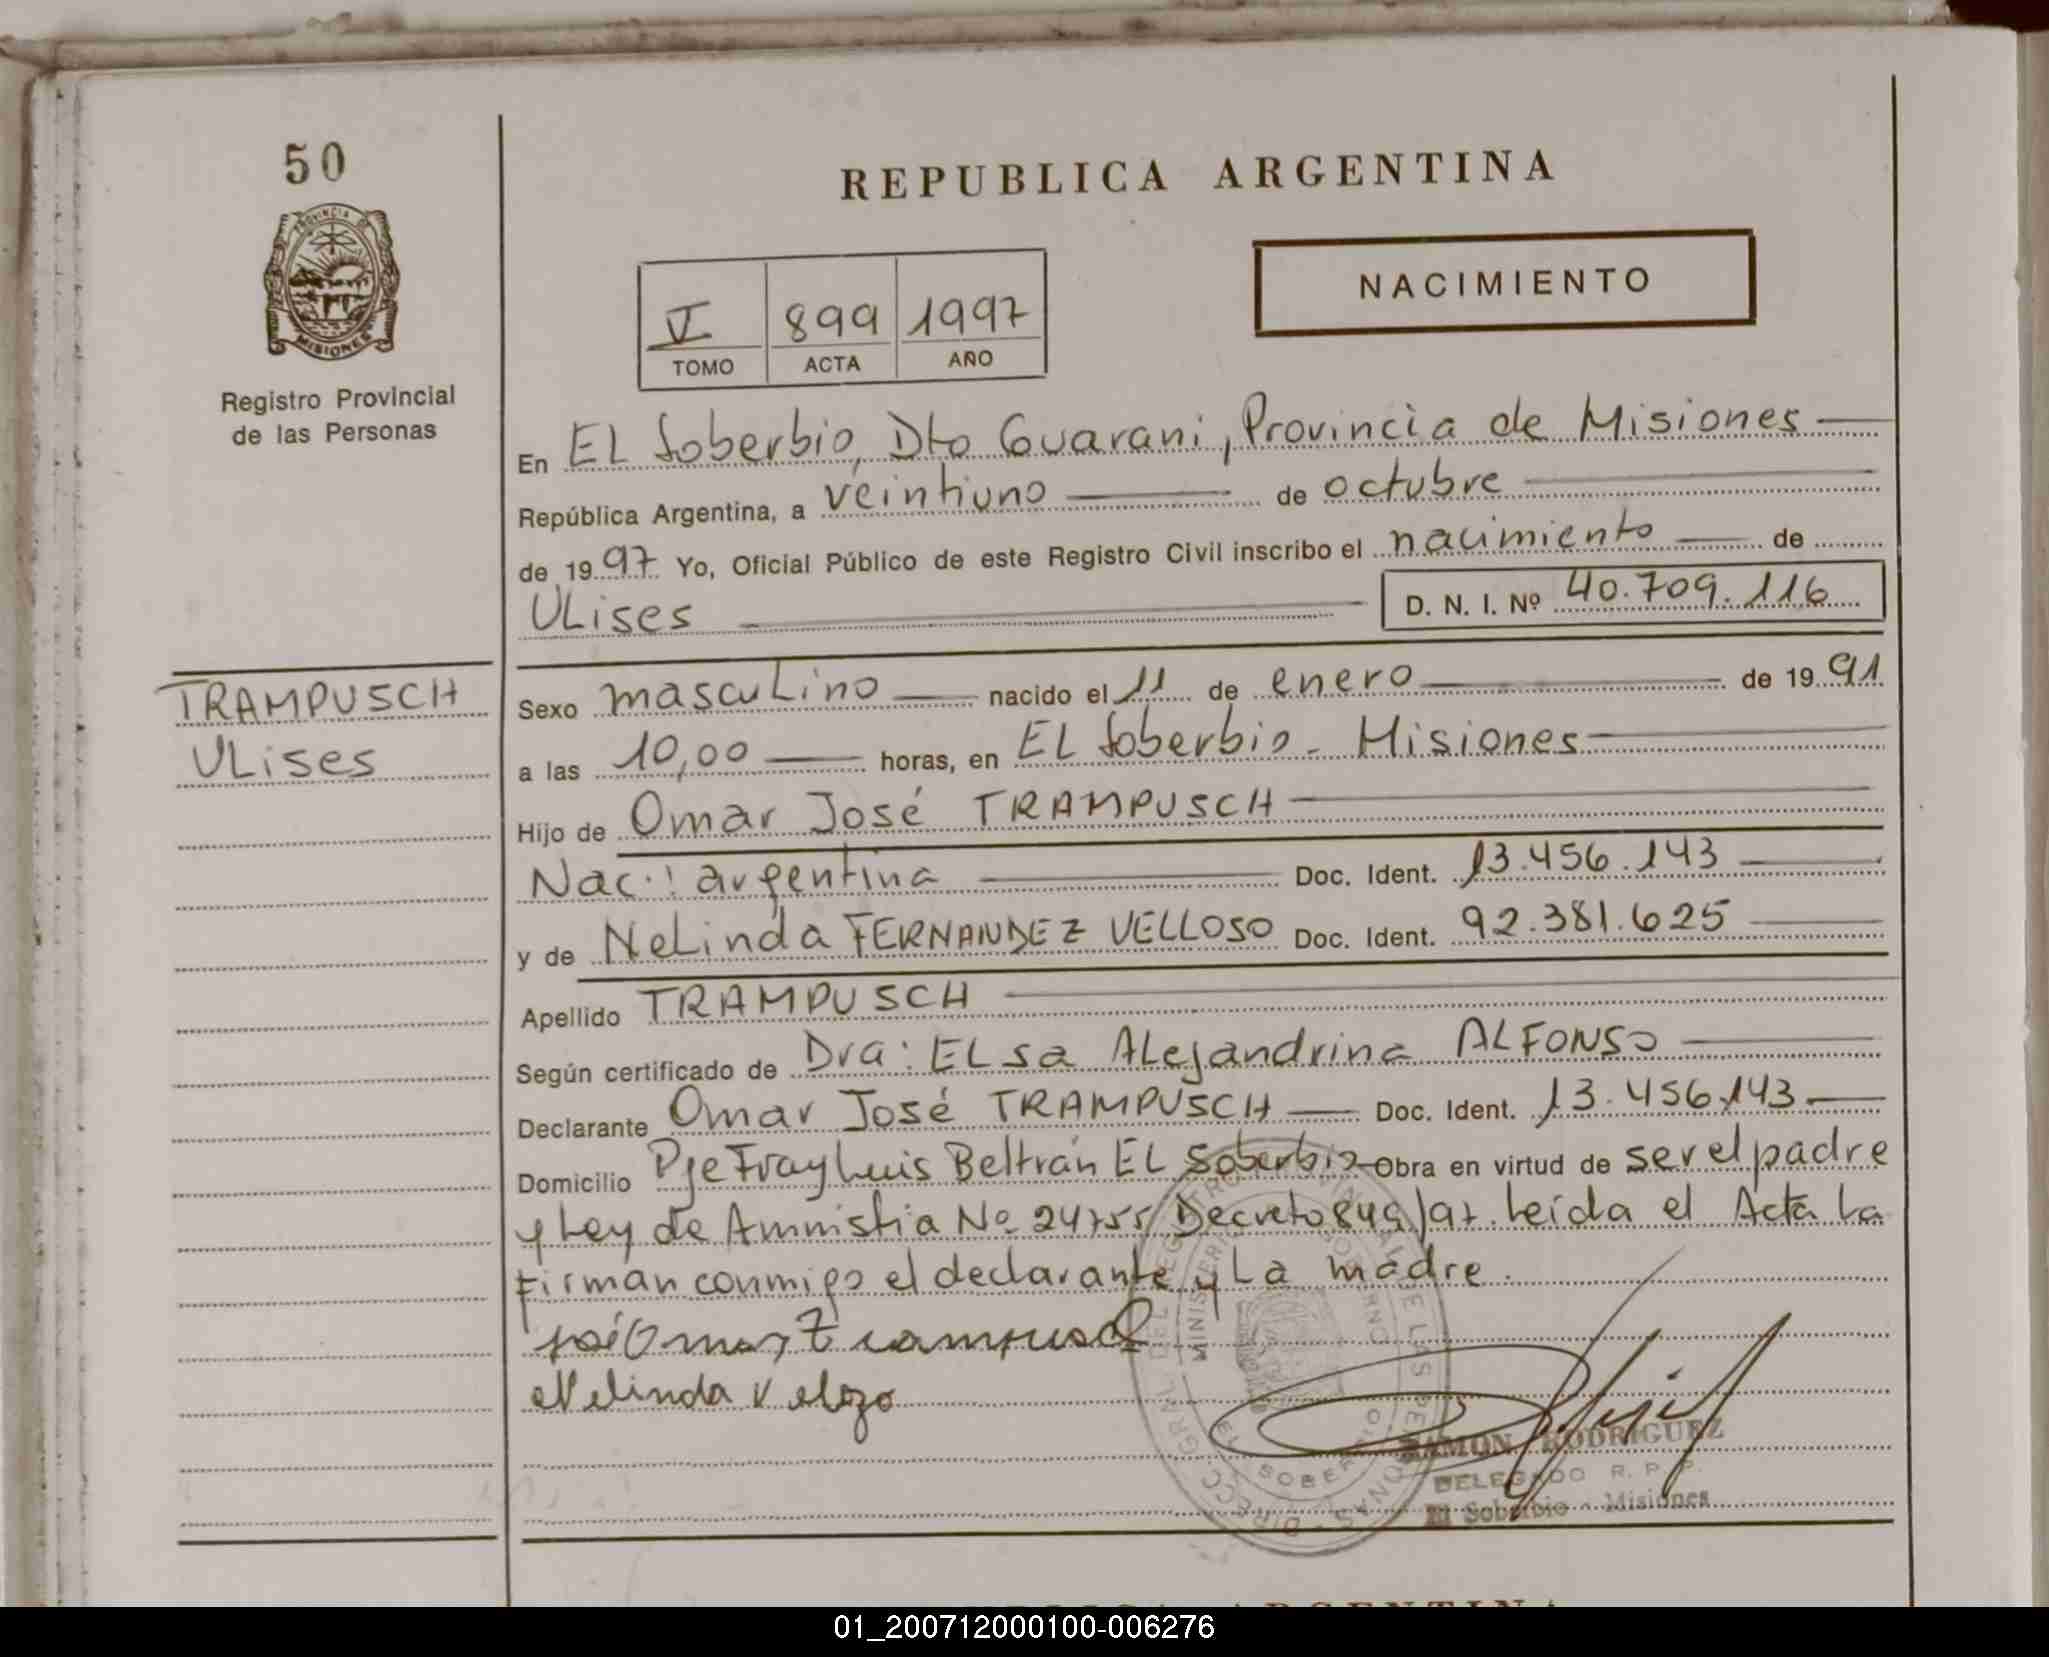 50
REPUBLICA ARGENTINA
PROVINCIA DE
MISIONES
NACIMIENTO
V 899 1997
TOMO ACTA AÑO
Registro Provincial
de las Personas
En EL Soberbio, Dto Guarani, Provincia de Misiones
República Argentina, a veintiuno de octubre
de 1997 Yo, Oficial Público de este Registro Civil inscribo el nacimiento de
ULises D. N. I. Nº 40.709.116
TRAMPUSCH
ULises
Sexo mascuLino nacido el 11 de enero de 1991
a las 10,00 horas, en EL Soberbio - Misiones
Hijo de Omar José TRAMPUSCH
Nac.: argentina Doc. Ident. 13.456.143
y de NeLinda FERNANDEZ VELLOSO Doc. Ident. 92.381.625
Apellido TRAMPUSCH
Según certificado de Dra: ELsa ALejandrina ALFONSO
Declarante Omar José TRAMPUSCH Doc. Ident. 13.456.143
Domicilio Pje Fray Luis Beltrán EL Soberbio Obra en virtud de ser el padre
y Ley de Amnistia Nº 24755 Decreto 849/97. Leída el Acta La
firman conmigo el declarante y La madre.
José Omar Trampusch
Nelinda Velozo
RAMON RODRIGUEZ
DELEGADO R. P. P.
El Soberbio - Misiones
01_200712000100-006276